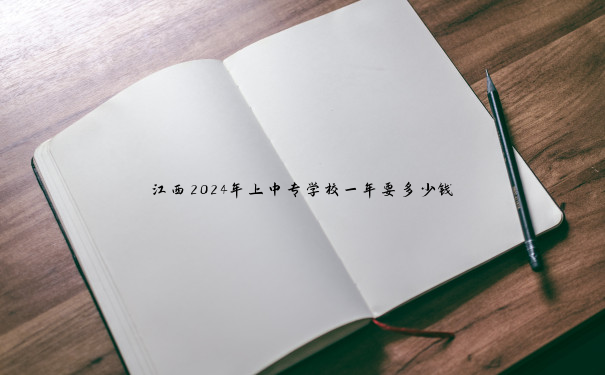 江西2024年上中专学校一年要多少钱